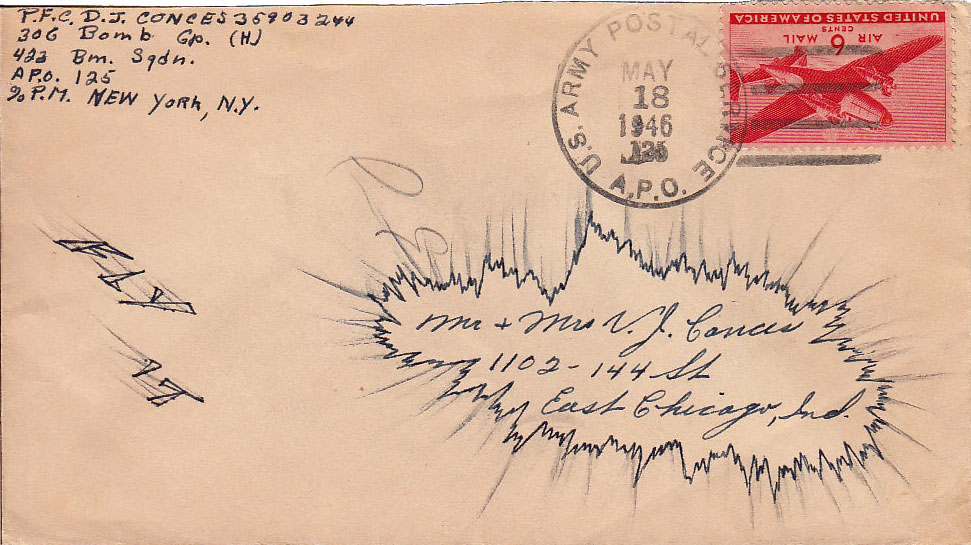 P.F.C. D.J. CONCES 35903244
306 Bomb Gp. (H)
423 Bm. Sqdn.
A.P.O. 125
℅ P.M. NEW York, N.Y.
U.S. ARMY POSTAL SERVICE
MAY
18
1946
125
A.P.O.
UNITED STATES OF AMERICA
AIR MAIL
6
CENTS
FLY
IT
Mr + Mrs V. J. Conces
1102-144 St
East Chicago, Ind.